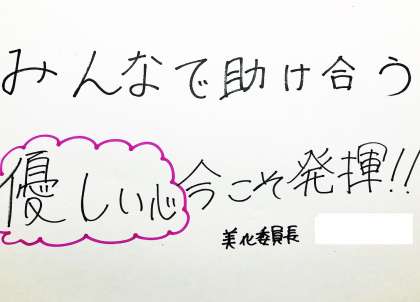 みんなで助け合う
優しい心今こそ発揮!!
美化委員長